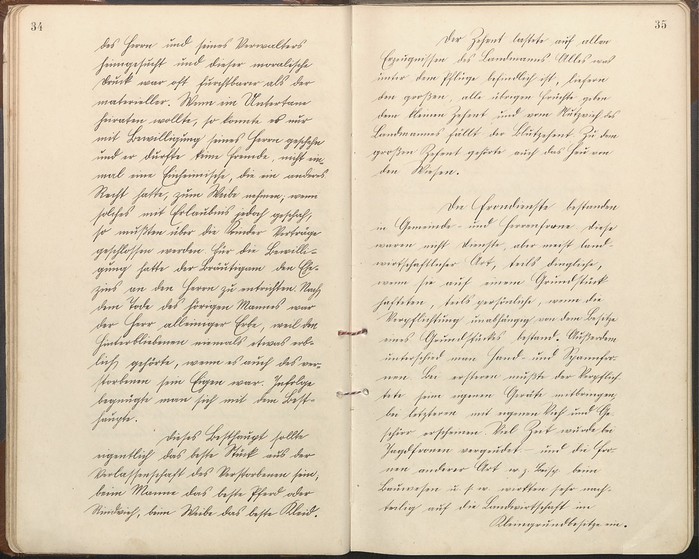 34
des Herrn und seines Verwalters
heimgesucht und dieser moralische
Druck war oft furchtbarer als der
materieller. Wenn ein Untertan
heiraten wollte, so konnte es nur
mit Bewilligung seines Herrn geschehn
und er durfte keine Fremde, nicht ein-
mal eine Einheimische, die ein anderes
Recht hatte, zum Weibe nehmen, wenn
solches mit Erlaubnis jedoch geschah,
so mußten über die Kinder Verträge
geschlossen werden. Für die Bewilli-
gung hatte der Bräutigam den Ehe-
zins an den Herrn zu entrichten. Nach
dem Tode des hörigen Mannes war
der Herr alleiniger Erbe, weil den
Hinterbliebenen niemals etwas erb-
lich gehörte, wenn es auch des ver-
storbenen sein Eigen war. Infolge
begnügte man sich mit dem Best-
haupte.
Dieses Besthaupt sollte
eigentlich das beste Stück aus der
Verlassenschaft des Verstorbenen sein,
beim Manne das beste Pferd oder
Rindvieh, beim Weibe das beste Kleid.
35
Der Zehent lastete auf allen
Erzeugnissen des Landmannes. Alles was
unter dem Pfluge befindlich ist, liefern
den großen, alle übrigen Früchte geben
den kleinen Zehent und vom Nutzvieh des
Landmannes fällt der Blutzehent. Zu dem
großen Zehent gehörte auch das Heu von
den Wiesen.
Die Frondienste bestanden
in Gemeinde- und Herrenfrone, diese
waren nicht Dienste, aber meist land-
wirtschaftlicher Art, teils dingliche,
wenn sie auf einem Grundstück
hafteten, teils persönliche, wenn die
Verpflichtung unabhängig von dem Besitze
eines Grundstückes bestand. Außerdem
unterschied man Hand- und Spannfro-
nen. Bei ersteren mußte der Verpflich-
tete sein eigenes Geräte mitbringen,
bei letzteren mit eigenen Vieh und Ge-
schirr erscheinen. Viel Zeit wurde bei
Jagdfronen vergeudet - und die Fro-
nen anderer Art w. z. Beisp. beim
Bauwesen u. s. w. wirkten sehr nach-
teilig auf die Landwirtschaft im
Kleingrundbesitze ein.